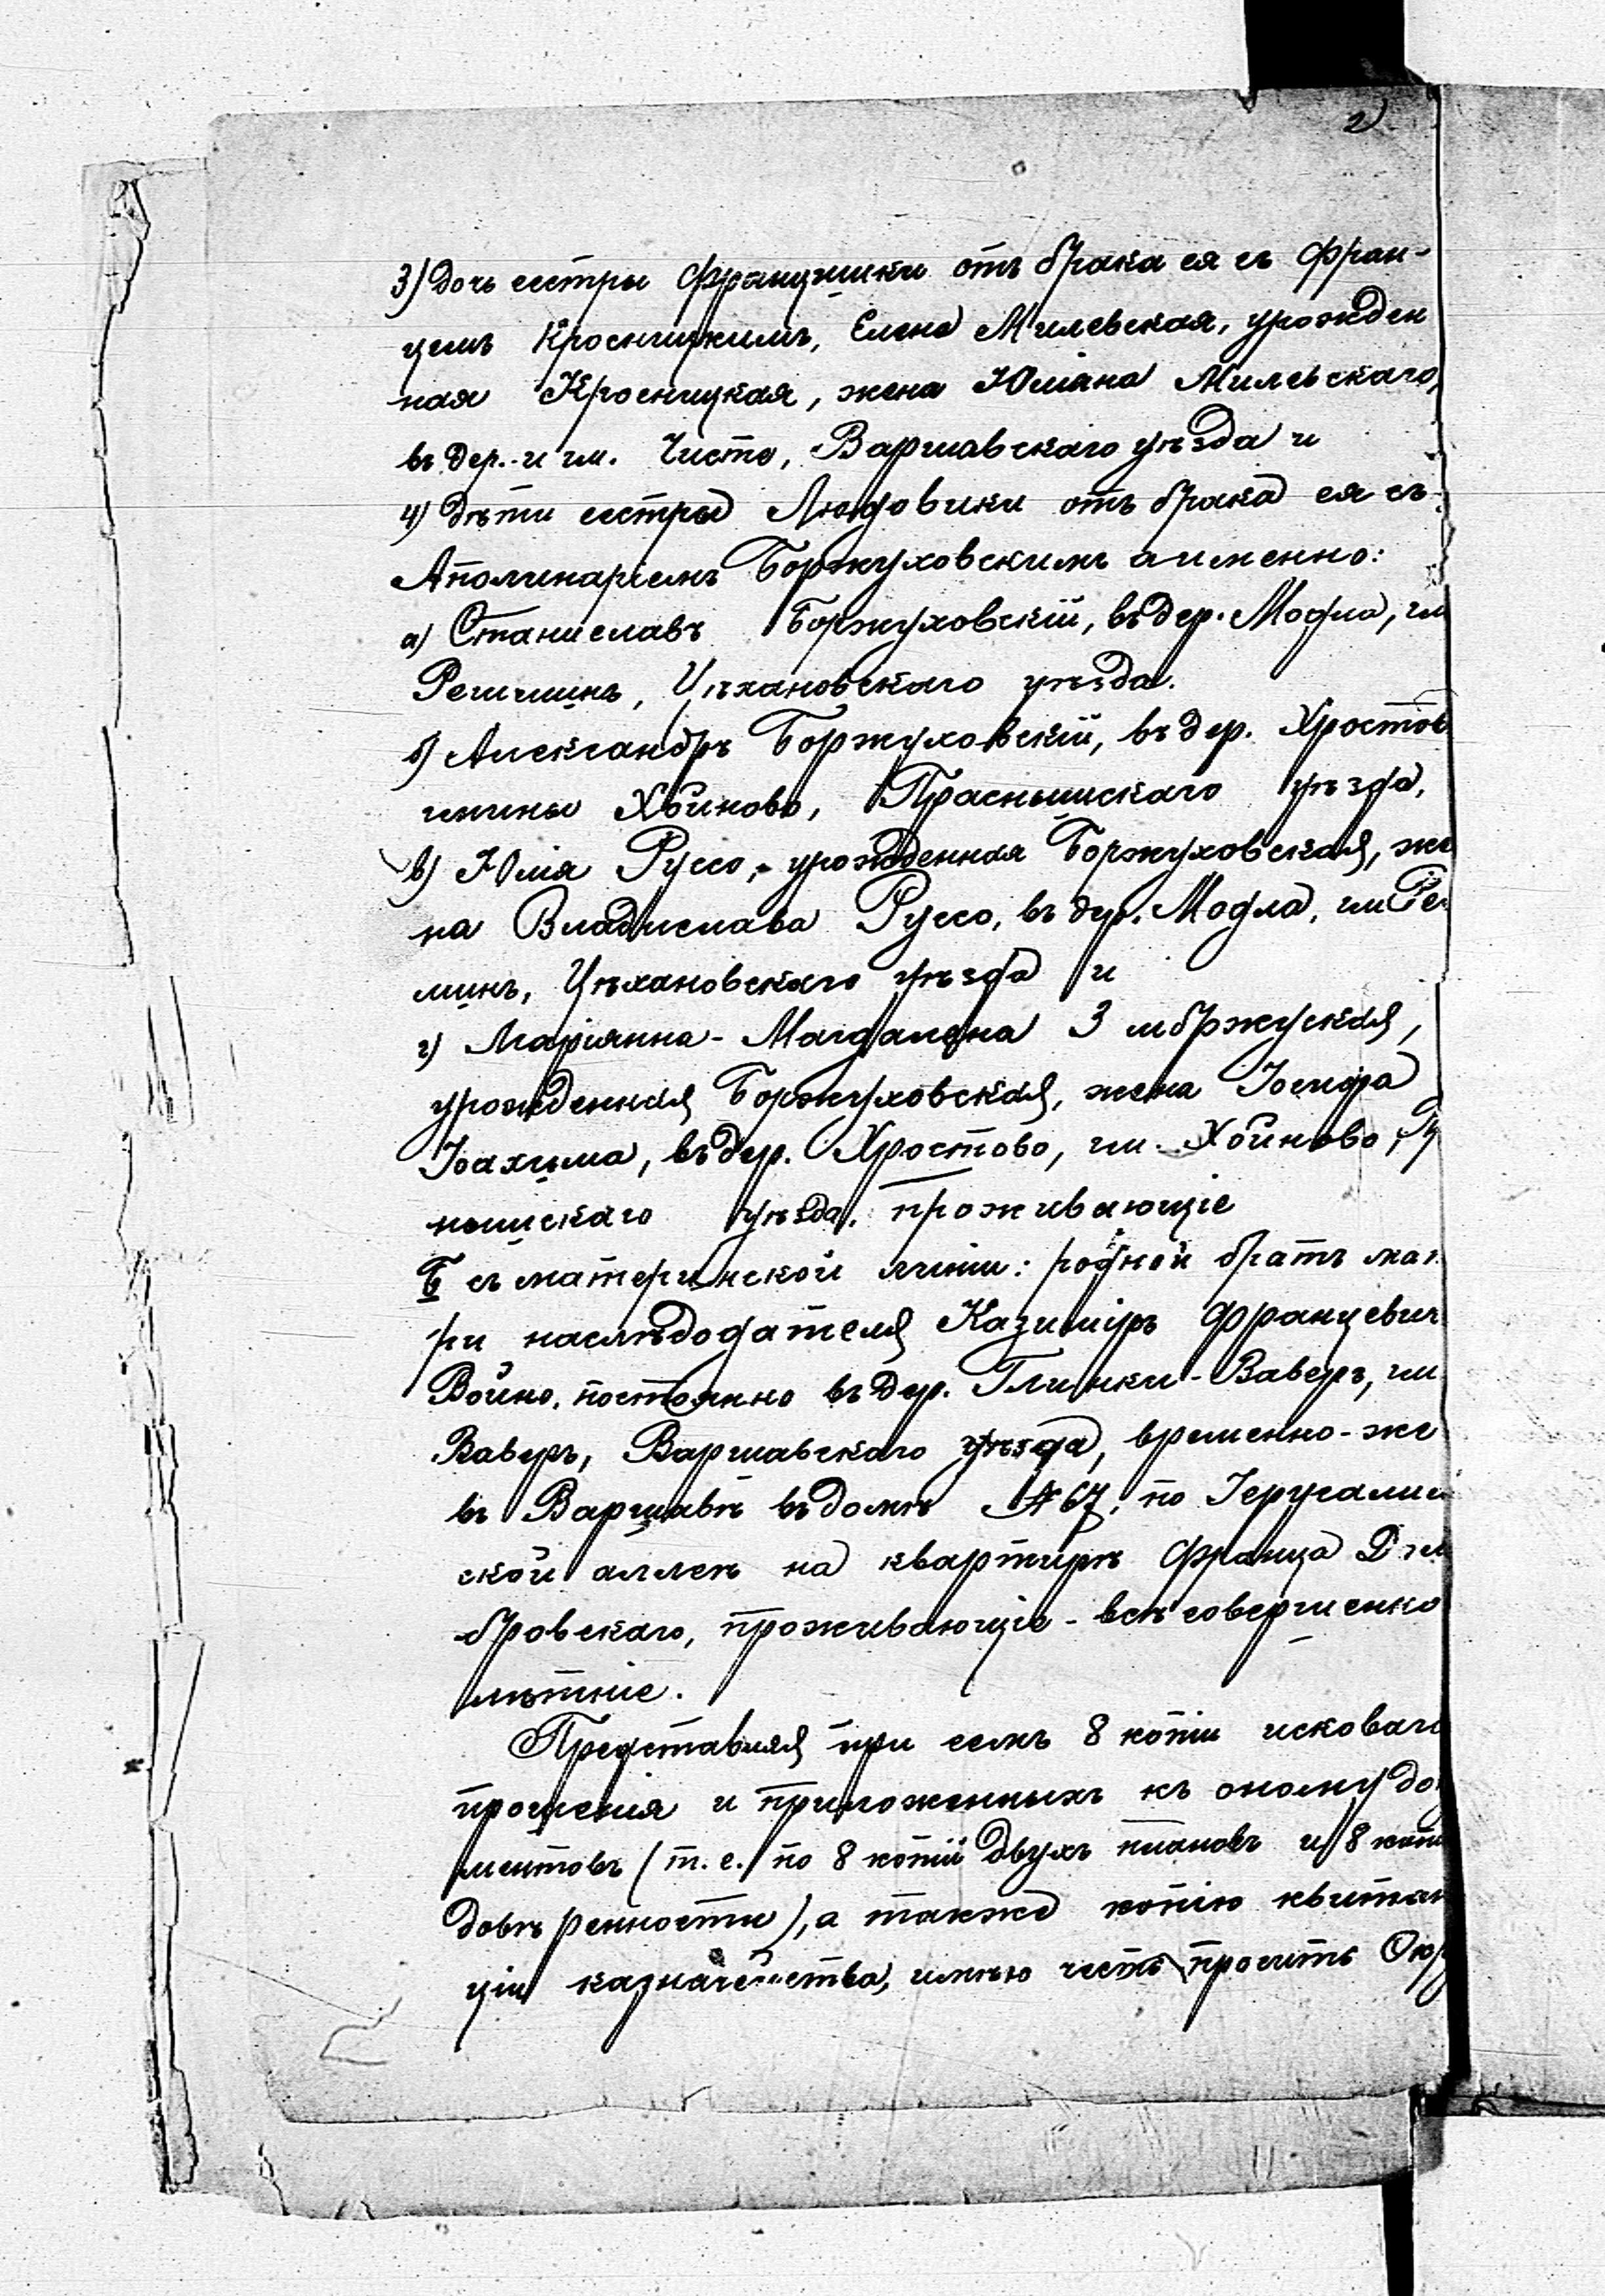 2
3) дочь сестры Францишки отъ брака ея съ Фран-
цемъ Кросницкимъ, Елена Милевская, урожден
ная Кросницкая, жена Юліана Милевскаго,
въ дер. и гм. Чисте, Варшавскаго уѣзда и
4) дѣти сестры Людовики отъ брака ея съ
Аполинаріемъ Боржуховскимъ а именно:
а) Станиславъ Боржуховскій, въ дер. Модла, гм
Регишинъ, Цѣхановскаго уѣзда.
б) Александръ Боржуховскій, въ дер. Хростов
гмины Хойново, Праснышскаго уѣзда,
в) Юлія Руссо, урожденная Боржуховская, же
на Владислава Руссо, въ дер. Модла, гм Рег
минъ, Цѣхановскаго уѣзда и
г) Маріянна-Магдалена Змбржуская,
урожденная Боржуховская, жена Іосифа
Іоахима, въ дер. Хростово, гм. Хойново,
нышскаго уѣзда, проживающіе
Б съ материнской линіи: родной братъ мат
ри наслѣдодателя Казиміръ Францевич
Войно, постоянно въ дер. Глинки-Ваверъ, гм
Ваверъ, Варшавскаго уѣзда, временно-же
въ Варшавѣ въ домѣ № 67, по Іерусалим
ской аллеѣ на квартирѣ Франца Дом
бровскаго, проживающіе - всѣ совершенно
лѣтніе.
Представляя при семъ 8 копій исковаго
прошенія и приложенныхъ къ оному до
ментовъ (т. е. по 8 копій двухъ плановъ и 8 копі
довѣренности), а также копію квитан
ціи казначейства, имѣю честь просить Окр